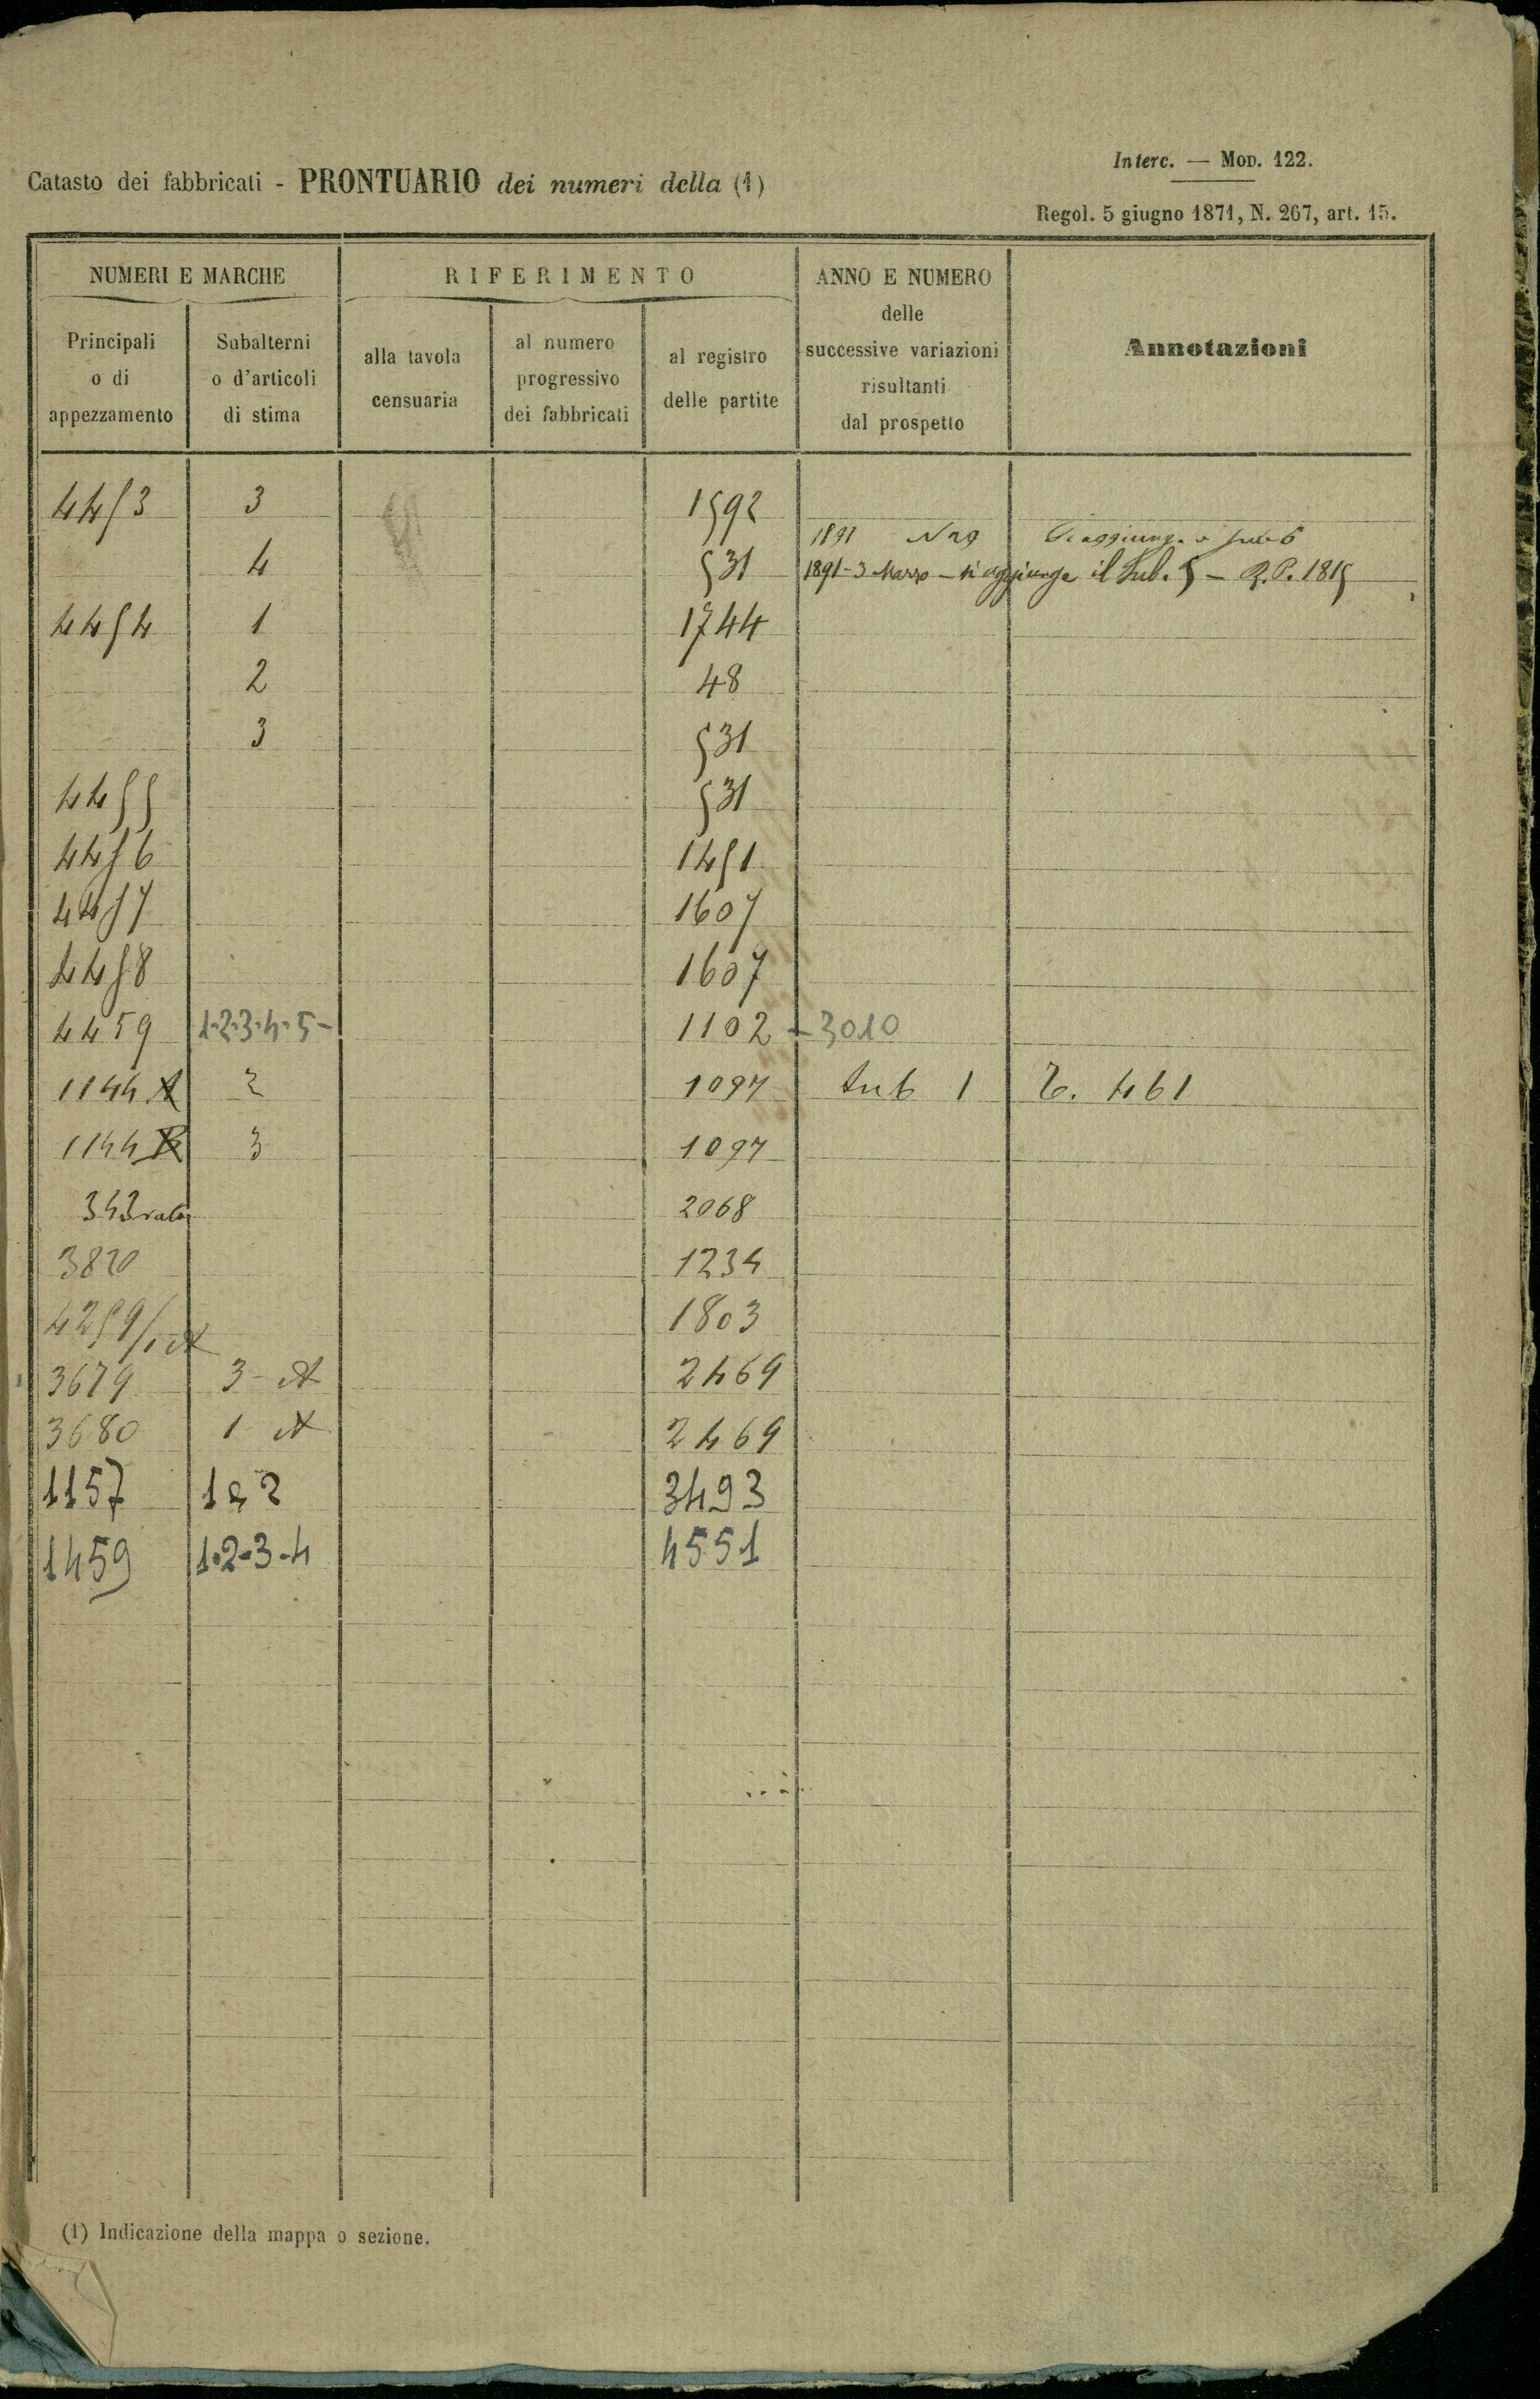 Interc. — Mod. 122.
Catasto dei fabbricati - PRONTUARIO dei numeri della (1)
Regol. 5 giugno 1871, N. 267, art. 15.
NUMERI E MARCHE
RIFERIMENTO
ANNO E NUMERO
delle
successive variazioni
risultanti
dal prospetto
Annotazioni
Principali
o di
appezzamento
Subalterni
o d'articoli
di stima
alla tavola
censuaria
al numero
progressivo
dei fabbricati
al registro
delle partite
4453 3 1592
1891 Si aggiunge sub 6
4 531 1891-3 Marzo - si aggiunge il Sub. 5 - R.P. 1815
4454 1 1744
2 48
3 531
4455 531
4456 1451
4457 1607
4458 1607
4459 1-2-3-4-5- 1102 - 3010
1144 A 2 1097 sub 1 461
1144 B 3 1097
343 2068
3820 1234
4259/1 A 1803
3679 3- A 2469
3680 1- A 2469
1157 1 2 3493
1459 1-2-3-4 4551
(1) Indicazione della mappa o sezione.